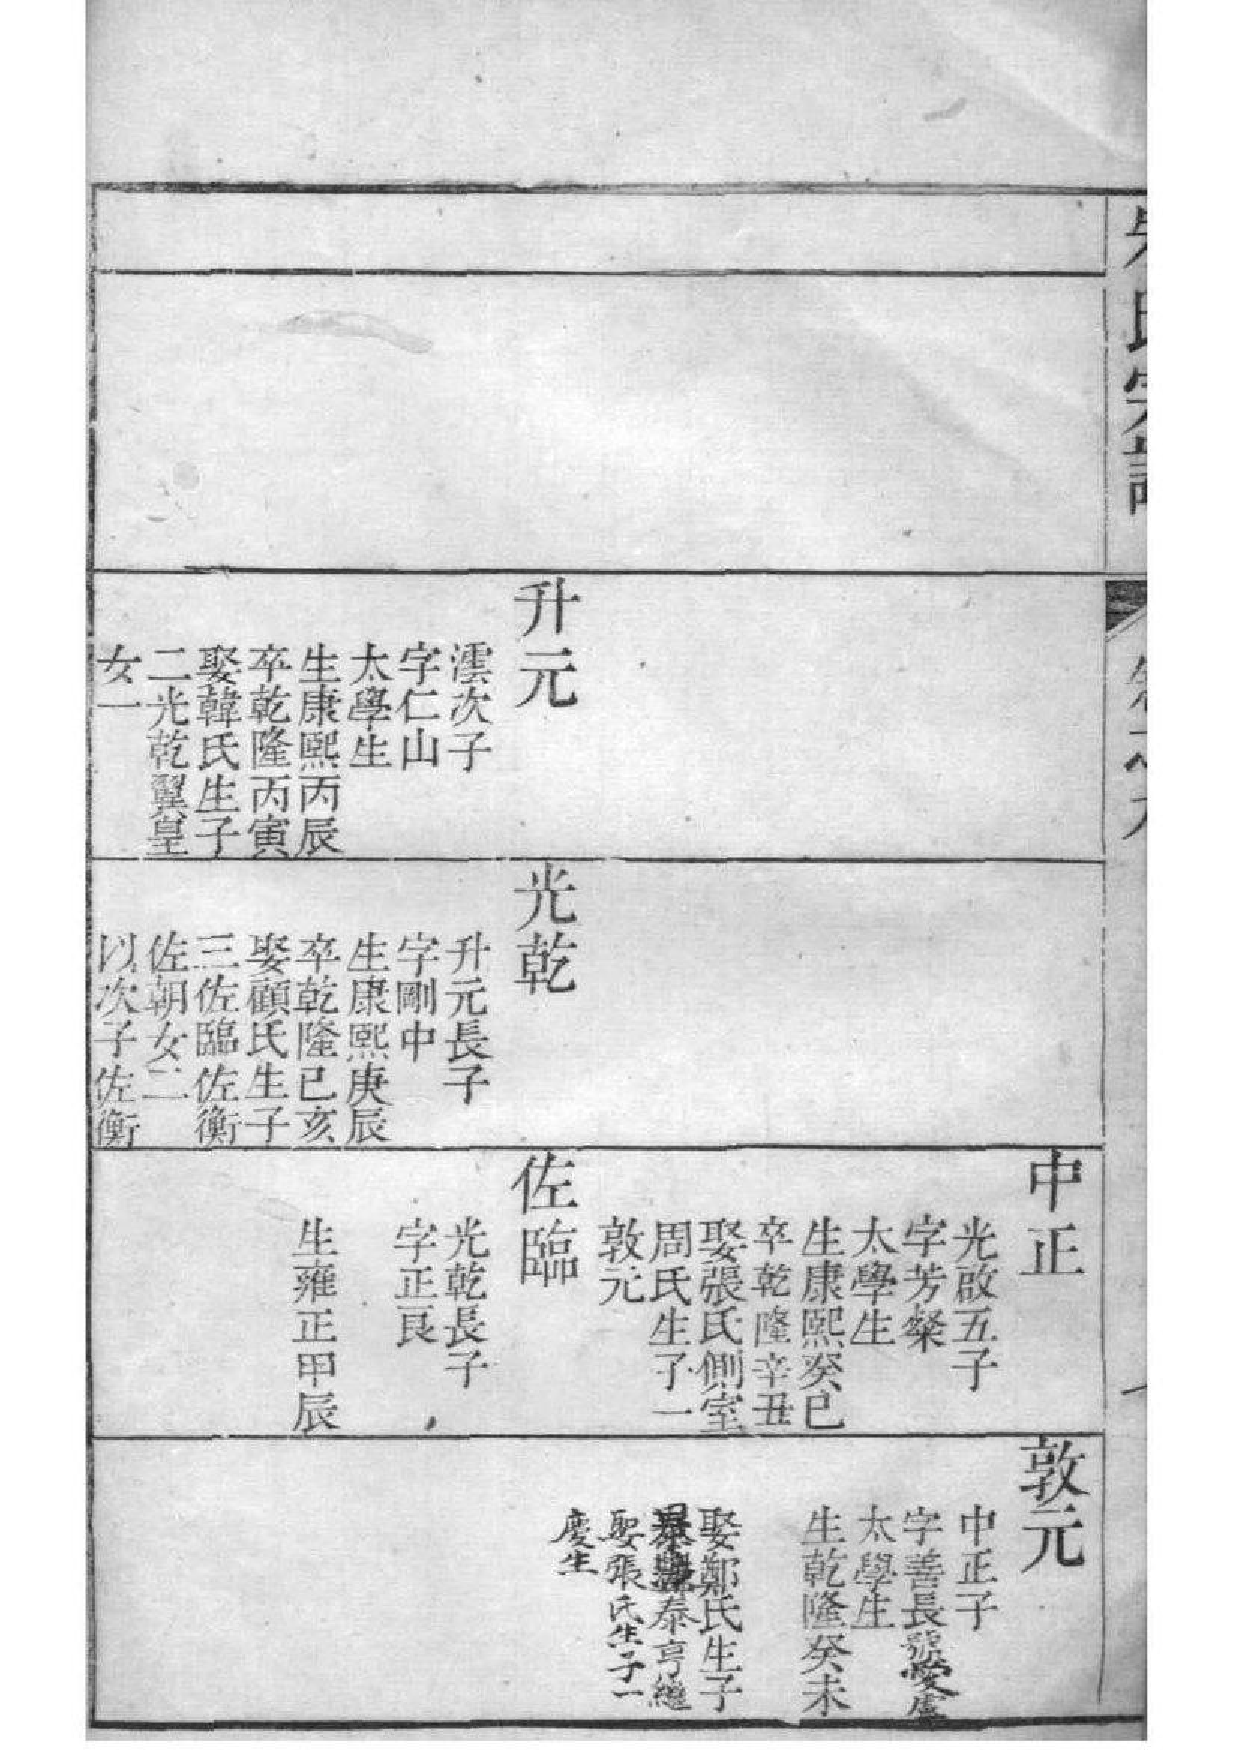 氏宗譜
中正
光啟五子
字芳粲
太學生
生康熙癸巳
卒乾隆辛丑
娶張氏側室
周氏生子一
敦元
敦元
中正子
字善長號愛廬
太學生
生乾隆癸未
娶鄭氏生子
泰亨繼
娶張氏生子一
慶生
升元
澐次子
字仁山
太學生
生康熙丙辰
卒乾隆丙寅
娶韓氏生子
二光乾翼皇
女一
光乾
升元長子
字剛中
生康熙庚辰
卒乾隆己亥
娶顧氏生子
三佐臨佐衡
佐朝女二
以次子佐衡
佐臨
光乾長子
字正艮
生雍正甲辰